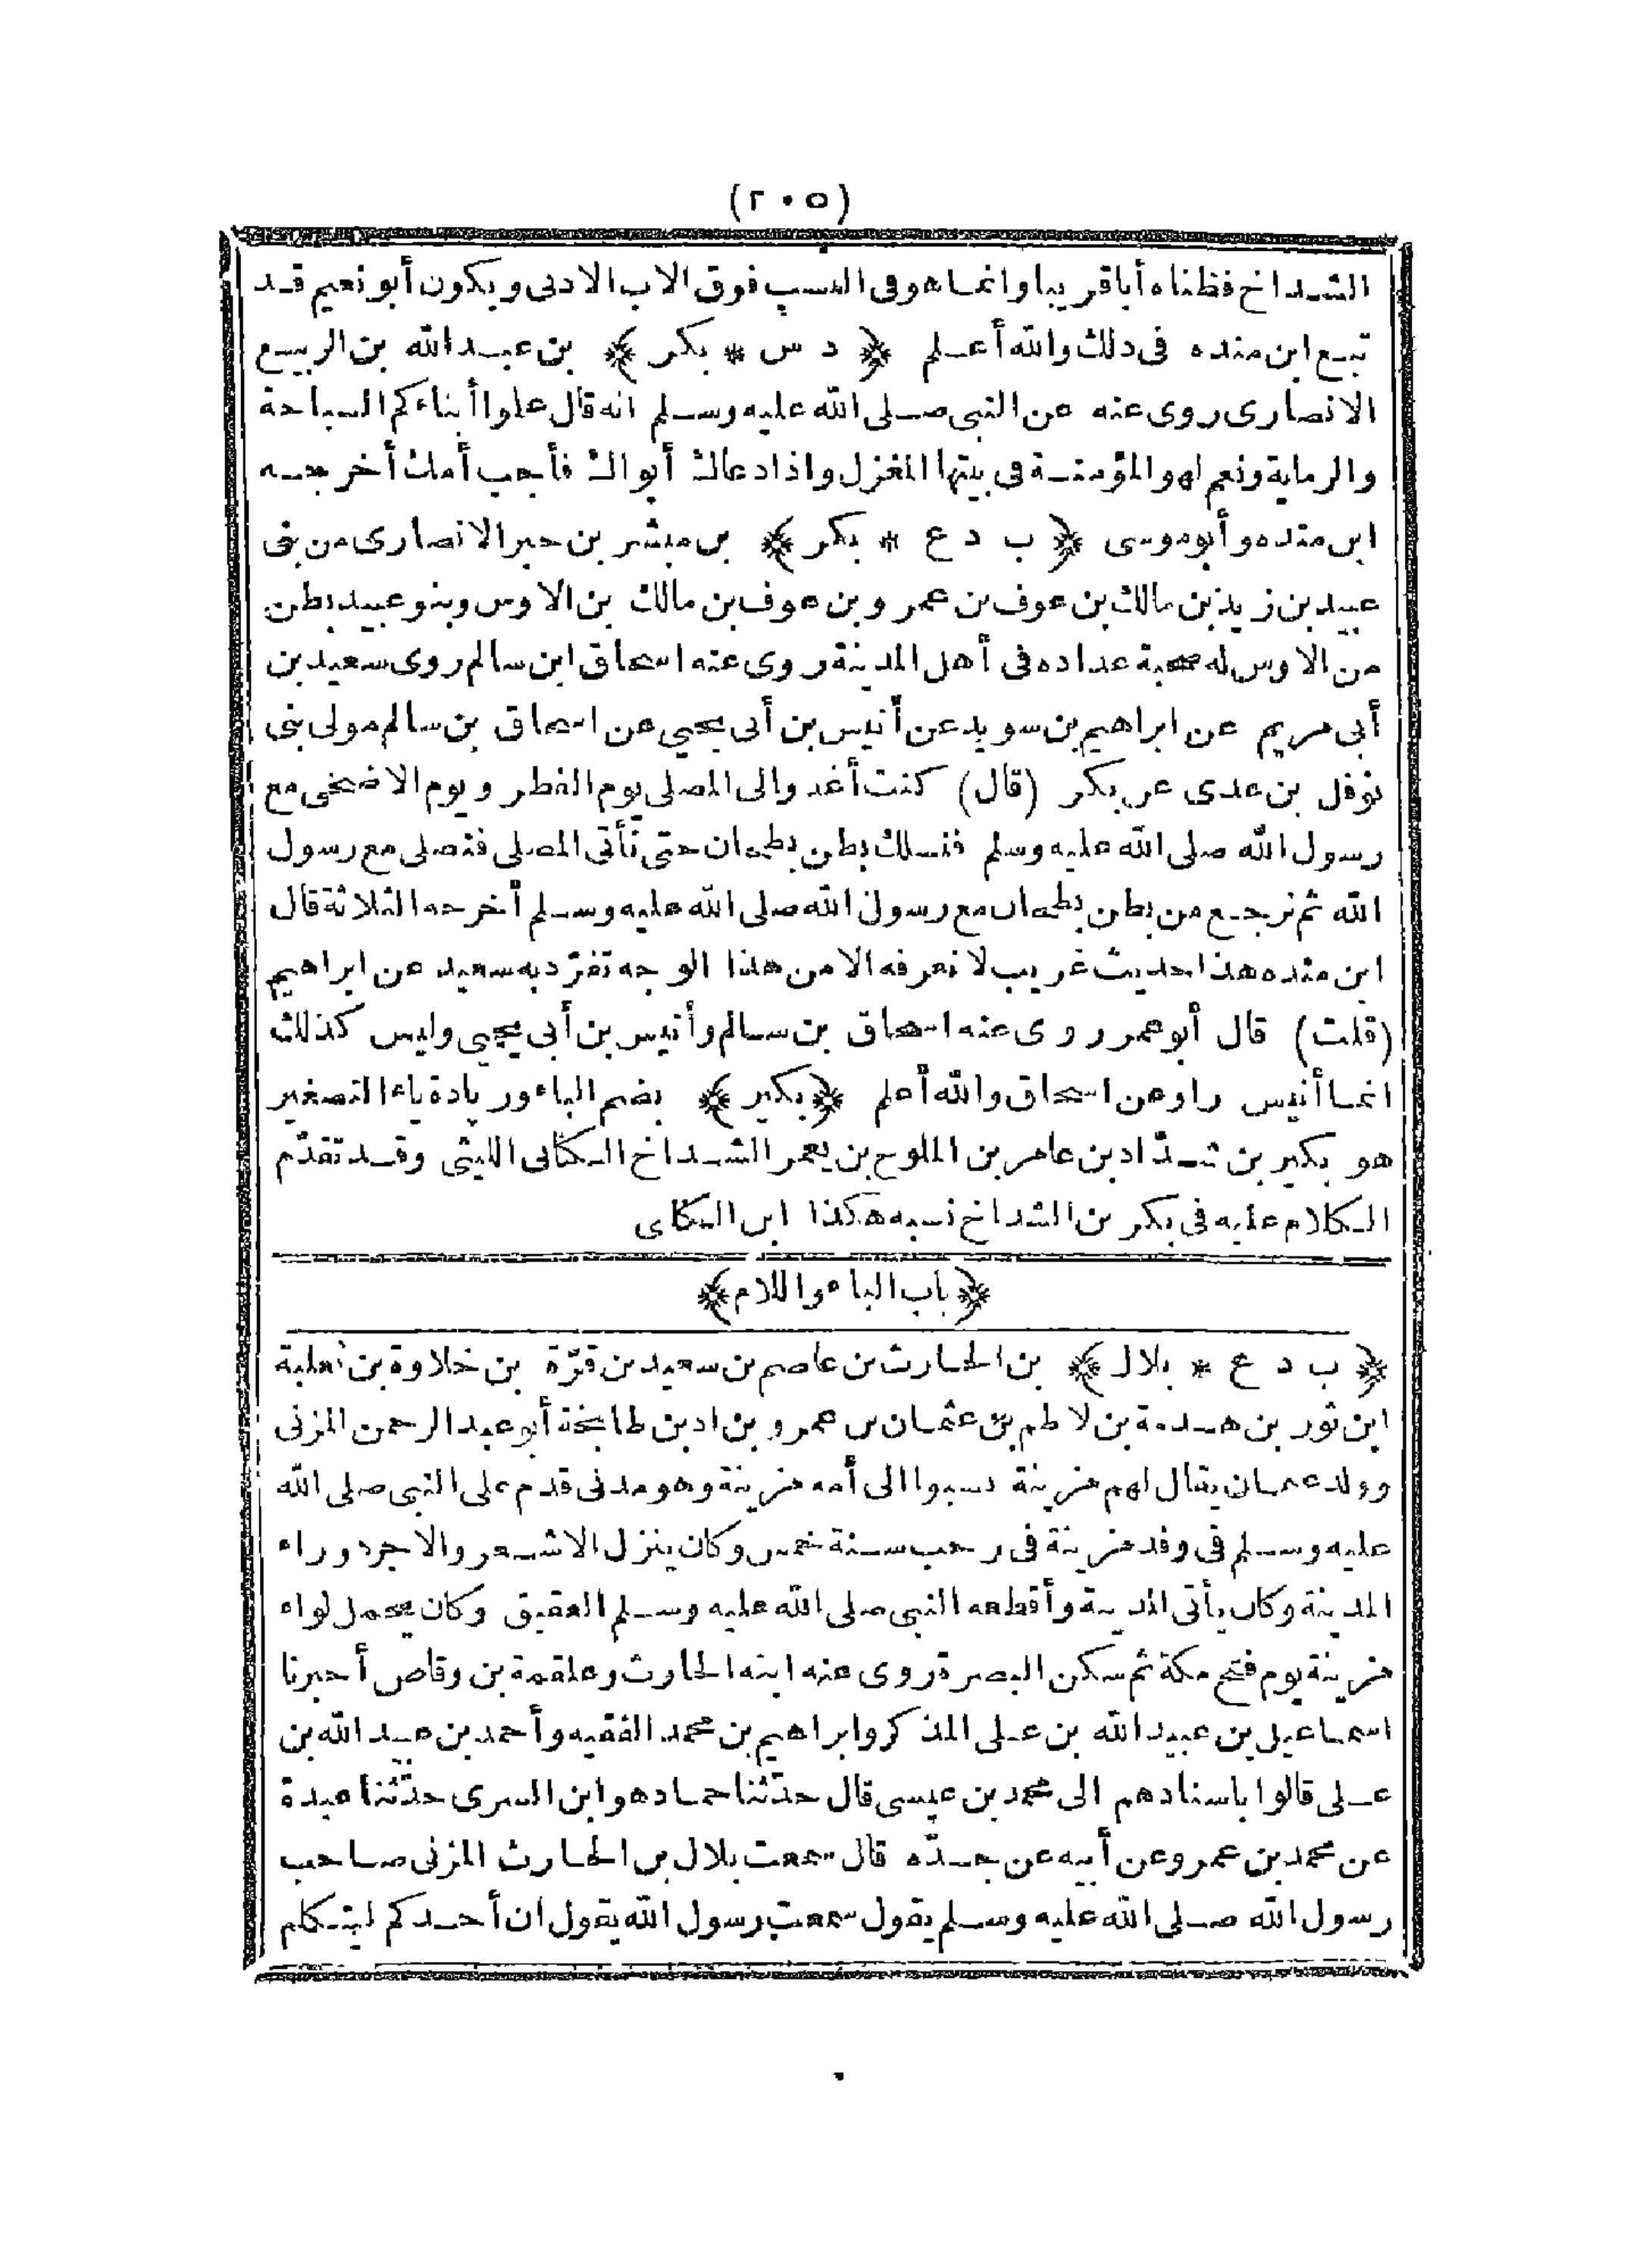 (٢٠٥)
الشداخ فظناه أباقريبا وانما هو فى النسب فوق الاب الادنى ويكون أبو نعيم قد
تبع ابن منده فى ذلك والله أعلم ﴿ د س * بكر ﴾ بن عبد الله بن الربيع
الانصارى روى عنه عن النبى صلى الله عليه وسلم انه قال علموا أبناءكم السباحة
والرماية ونعم لهو المؤمنة فى بيتها المغزل واذا دعاك أبواك فأجب أمك أخرجه
ابن منده وأبوموسى ﴿ ب د ع * بكر ﴾ بن مبشر بن خبر الانصارى من بنى
عبيد بن زيد بن مالك بن عوف بن عمرو بن عوف بن مالك بن الاوس وبنو عبيد بطن
من الاوس له صحبة عداده فى أهل المدينة روى عنه اسحاق ابن سالم روى سعيد بن
أبى مريم عن ابراهيم بن سويد عن أنيس بن أبى يحيى عن اسحاق بن سالم مولى بنى
نوفل بن عدى عن بكر (قال) كنت أغدو الى المصلى يوم الفطر ويوم الاضحى مع
رسول الله صلى الله عليه وسلم فنسلك بطن بطحان حتى نأتى المصلى فنصلى مع رسول
الله ثم نرجع من بطن بطحان مع رسول الله صلى الله عليه وسلم أخرجه الثلاثة قال
ابن منده هذا حديث غريب لا نعرفه الا من هذا الوجه تفرّد به سعيد عن ابراهيم
(قلت) قال أبو عمر روى عنه اسحاق بن سالم وأنيس بن أبى يحيى وليس كذلك
انما أنيس راو عن اسحاق والله أعلم ﴿بكير﴾ بضم الباء وزيادة ياء التصغير
هو بكير بن شدّاد بن عامر بن الملوح بن يعمر الشداخ الكنانى الليثى وقد تقدّم
الكلام عليه فى بكر بن الشداخ نسبه هكذا ابن الكلبى
﴿باب الباء واللام﴾
﴿ ب د ع * بلال ﴾ بن الحارث بن عاصم بن سعيد بن قرّة بن خلاوة بن ثعلبة
ابن ثور بن هدمة بن لاطم بن عثمان بن عمرو بن اد بن طابخة أبو عبد الرحمن المزنى
وولد عثمان يقال لهم مزينة نسبوا الى أمه مزينة وهو مدنى قدم على النبى صلى الله
عليه وسلم فى وفد مزينة فى رجب سنة خمس وكان ينزل الاشعر والاجرد وراء
المدينة وكان يأتى المدينة وأقطعه النبى صلى الله عليه وسلم العقيق وكان يحمل لواء
مزينة يوم فتح مكة ثم سكن البصرة روى عنه ابنه الحارث وعلقمة بن وقاص أخبرنا
اسماعيل بن عبيد الله بن على المذكر وابراهيم بن محمد الفقيه وأحمد بن عبيد الله بن
على قالوا باسنادهم الى محمد بن عيسى قال حدّثنا حماد هو ابن السرى حدّثنا عبدة
عن محمد بن عمرو عن أبيه عن جدّه قال سمعت بلال بن الحارث المزنى صاحب
رسول الله صلى الله عليه وسلم يقول سمعت رسول الله يقول ان أحدكم ليتكلم